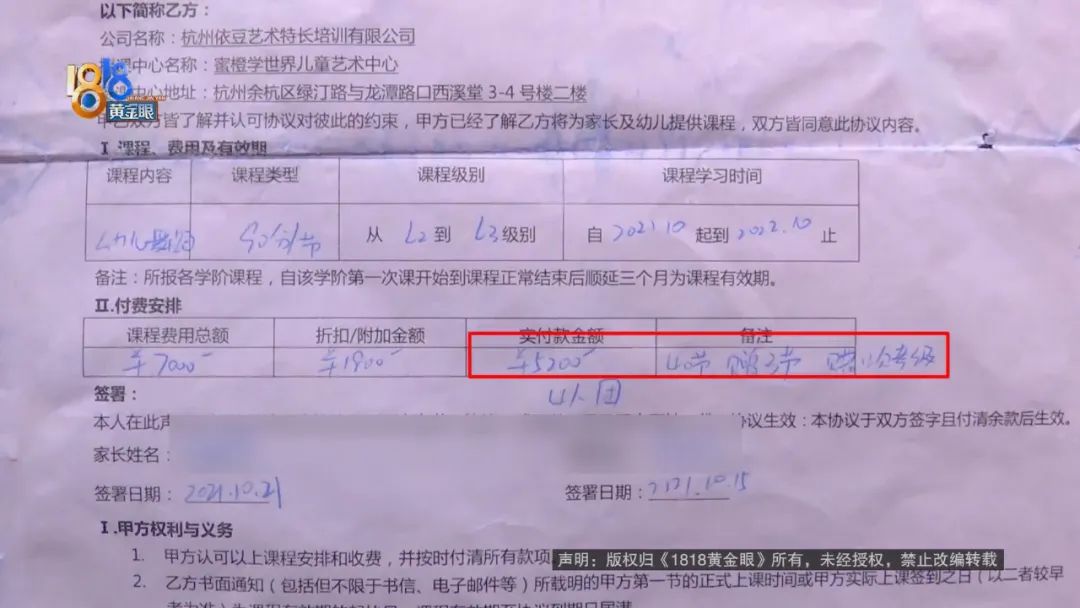 以下简称乙方：
公司名称：杭州依豆艺术特长培训有限公司
课中心名称：蜜橙学世界儿童艺术中心
1818
黄金眼
中心地址：杭州余杭区绿汀路与龙潭路口西溪堂 3-4 号楼二楼
甲乙双方皆了解并认可协议对彼此的约束，甲方已经了解乙方将为家长及幼儿提供课程，双方皆同意此协议内容。
I.课程、费用及有效期
课程内容 课程类型 课程级别 课程学习时间
90分/节 从 L2 到 L3 级别 自 2021.10 起到 2022.10 止
备注：所报各学阶课程，自该学阶第一次课开始到课程正常结束后顺延三个月为课程有效期。
II.付费安排
课程费用总额 折扣/附加金额 实付款金额 备注
￥7000 ￥1900 ￥5200 40节 赠3节 赠1次考级
签署： 4人团
本人在此声 协议生效：本协议于双方签字且付清余款后生效。
家长姓名：
签署日期：2021.10.21 签署日期：2121.10.15
I.甲方权利与义务
1. 甲方认可以上课程安排和收费，并按时付清所有款项
声明：版权归《1818黄金眼》所有，未经授权，禁止改编转载
2. 乙方书面通知（包括但不限于书信、电子邮件等）所载明的甲方第一节的正式上课时间或甲方实际上课签到之日（以二者较